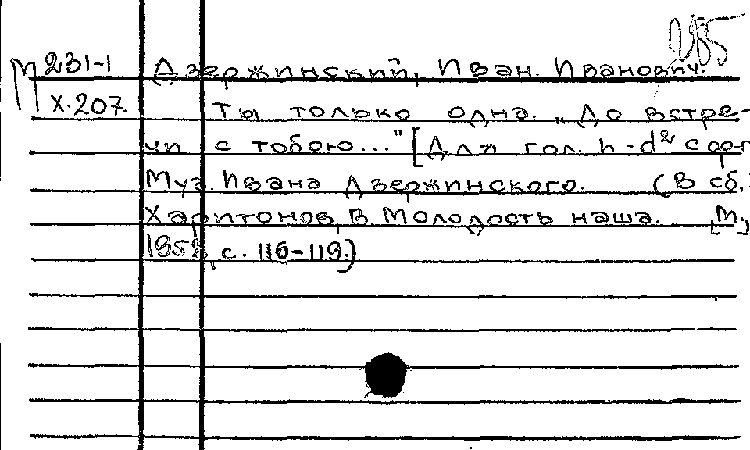 М 231-1 Дзержинский, Иван Иванович.
X.207. Ты только одна. „До встре-
чи с тобою..." [Для гол. h-d² с фп.
Муз. Ивана Дзержинского. (В сб.:
Харитонов, В. Молодость наша. [М.,
с. 116-119.)